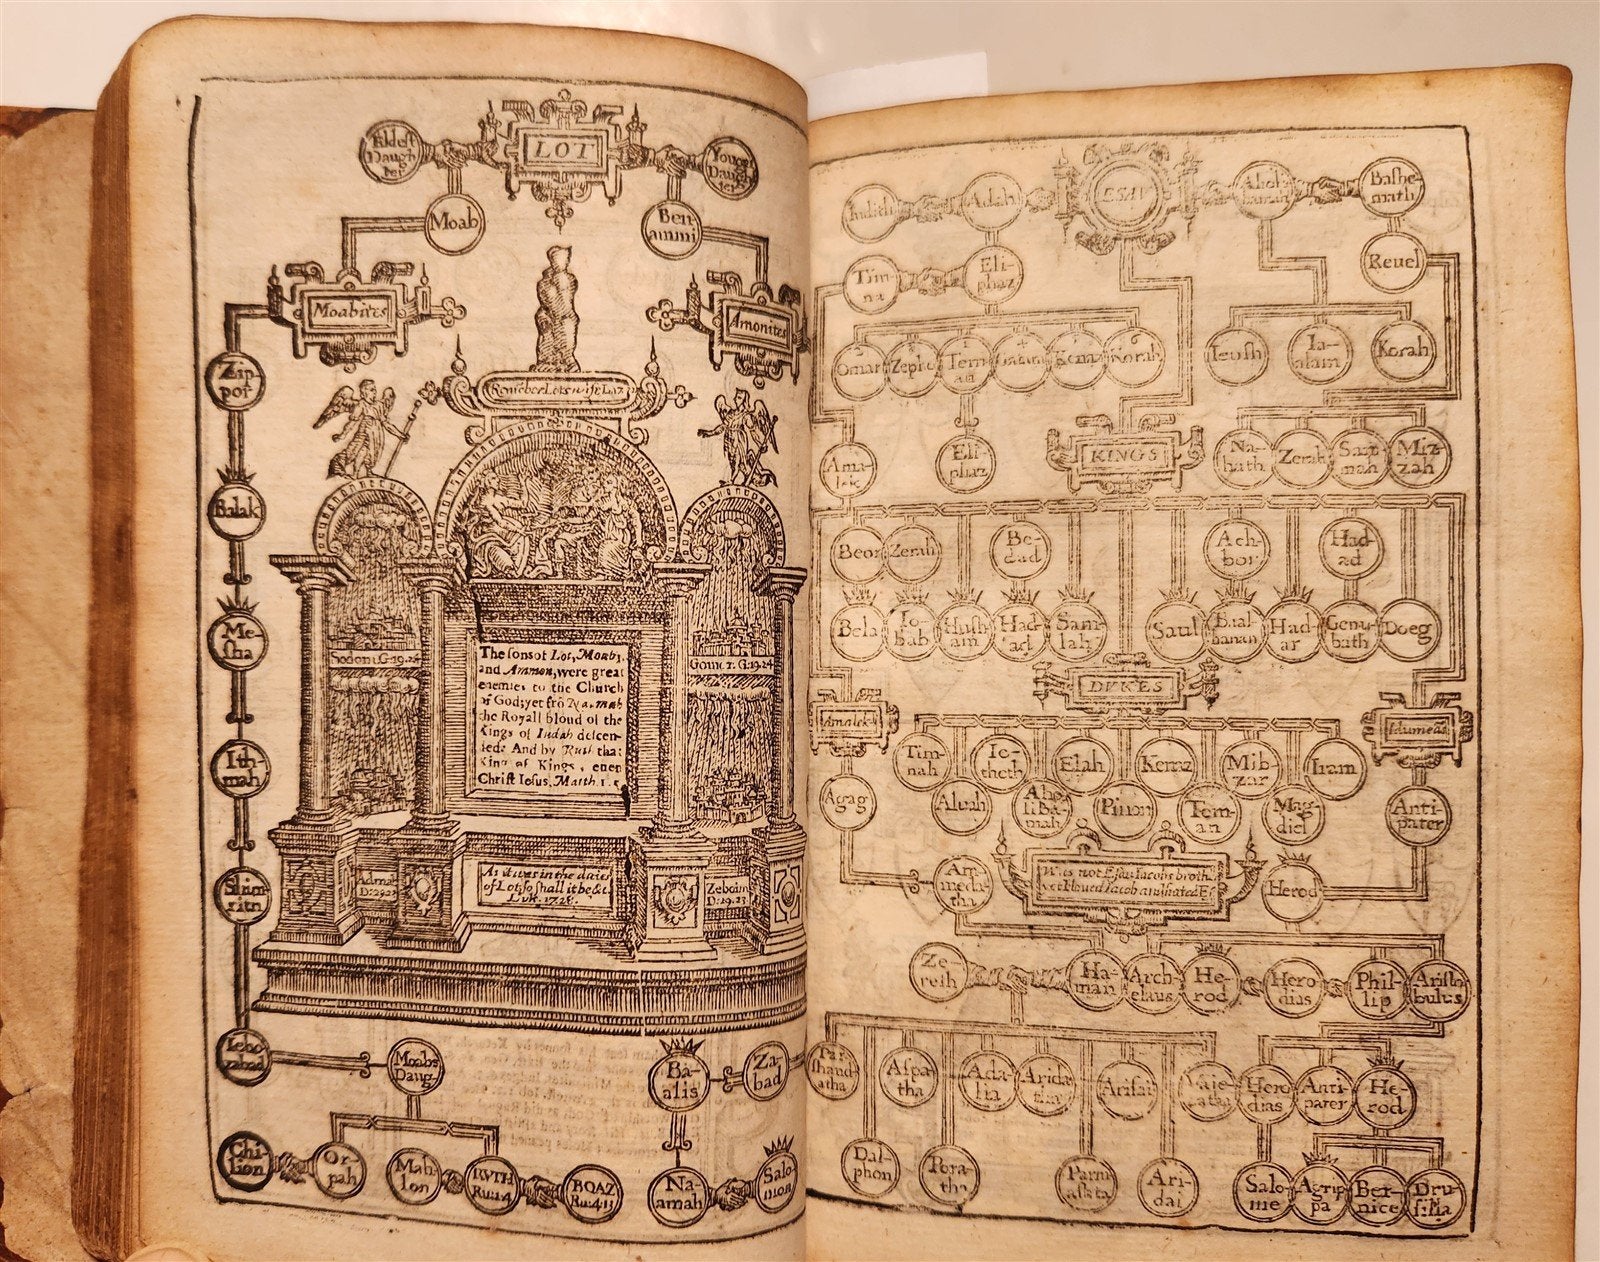 Eldest
Daugh
ter
LOT
Youngst
Daugh
ter
Moab
Ben
ammi
Moabites
Amonites
Zip-
por
Remēber Lots wife
Balak
Me-
sha
Sodom G:19.24
G:19.24
The sons of Lot, Moab,
and Ammon, were great
enemies to the Church
of God; yet frō Naamah
the Royall bloud of the
Kings of Iudah descen-
ded: And by Ruth that
King of Kings, even
Christ Iesus, Matth. 1.5
Ith-
mah
Admah
D:29.23
As it was in the daies
of Lot, so shall it be &c.
Luk. 17.28.
Zeboim
D:29.23
Moabs
Daug
Ba-
alis
Za-
bad
Chi-
lion
Or-
pah
Mah-
lon
RVTH
Ru:1.4
BOAZ
Ru:4.13
Na-
amah
Salo-
mon
Iudith
Adah
ESAV
Aholi
bamah
Bashe-
math
Tim
na
Eli-
phaz
Reuel
Omar
Zepho
Tem
an
Gatam
Kenaz
Korah
Ieush
Ia-
alam
Korah
Ama-
lek
Eli-
phaz
KINGS
Na-
hath
Zerah
Sam
mah
Miz-
zah
Beor
Zerah
Be-
dad
Ach-
bor
Had-
ad
Bela
Io-
bab
Hush
am
Had-
ad
Sam
lah
Saul
Baal-
hanan
Had-
ar
Genu-
bath
Doeg
DVKES
Amalek
Idumeās
Tim-
nah
Ie-
theth
Elah
Kenaz
Mib-
zar
Iram
Agag
Alvah
Aho-
liba-
mah
Pinon
Tem-
an
Mag-
diel
Anti-
pater
Am-
meda-
tha
Was not Esau Iacobs broth.
yet I loved Iacob and hated E
Herod
Ze-
resh
Ha-
man
Arch-
elaus
He-
rod
Hero
dias
Phil-
lip
Aristo
bulus
Par
shand-
atha
Aspa-
tha
Ada-
lia
Arida-
tha
Arisai
Vaje-
zatha
Hero
dias
Anti-
pater
He-
rod
Dal-
phon
Pora-
tha
Parm
ashta
Ari-
dai
Salo-
me
Agrip
pa
Ber-
nice
Dru-
silla